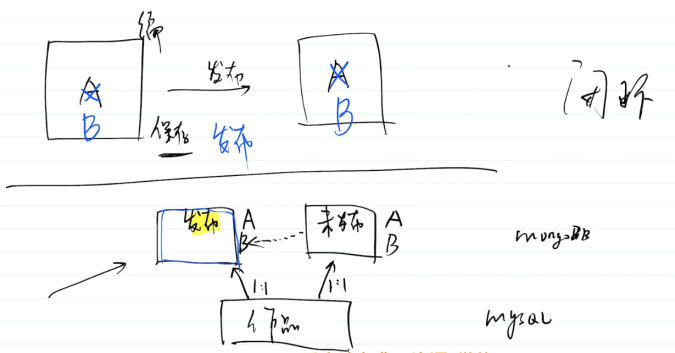 编
A 发布 A 闭环
B 保存 发布 B
发布 A 未发布 A
B B mongoDB
1:1 1:1
作品 mySQL